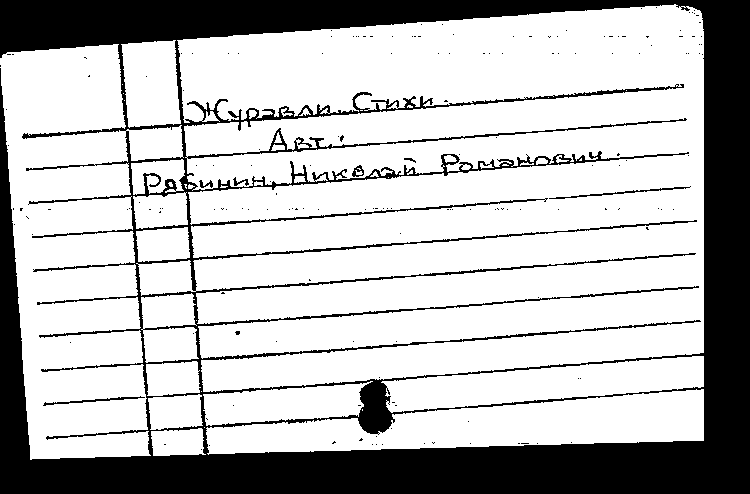 Журавли. Стихи.
Авт.:
Рябинин, Николай Романович.